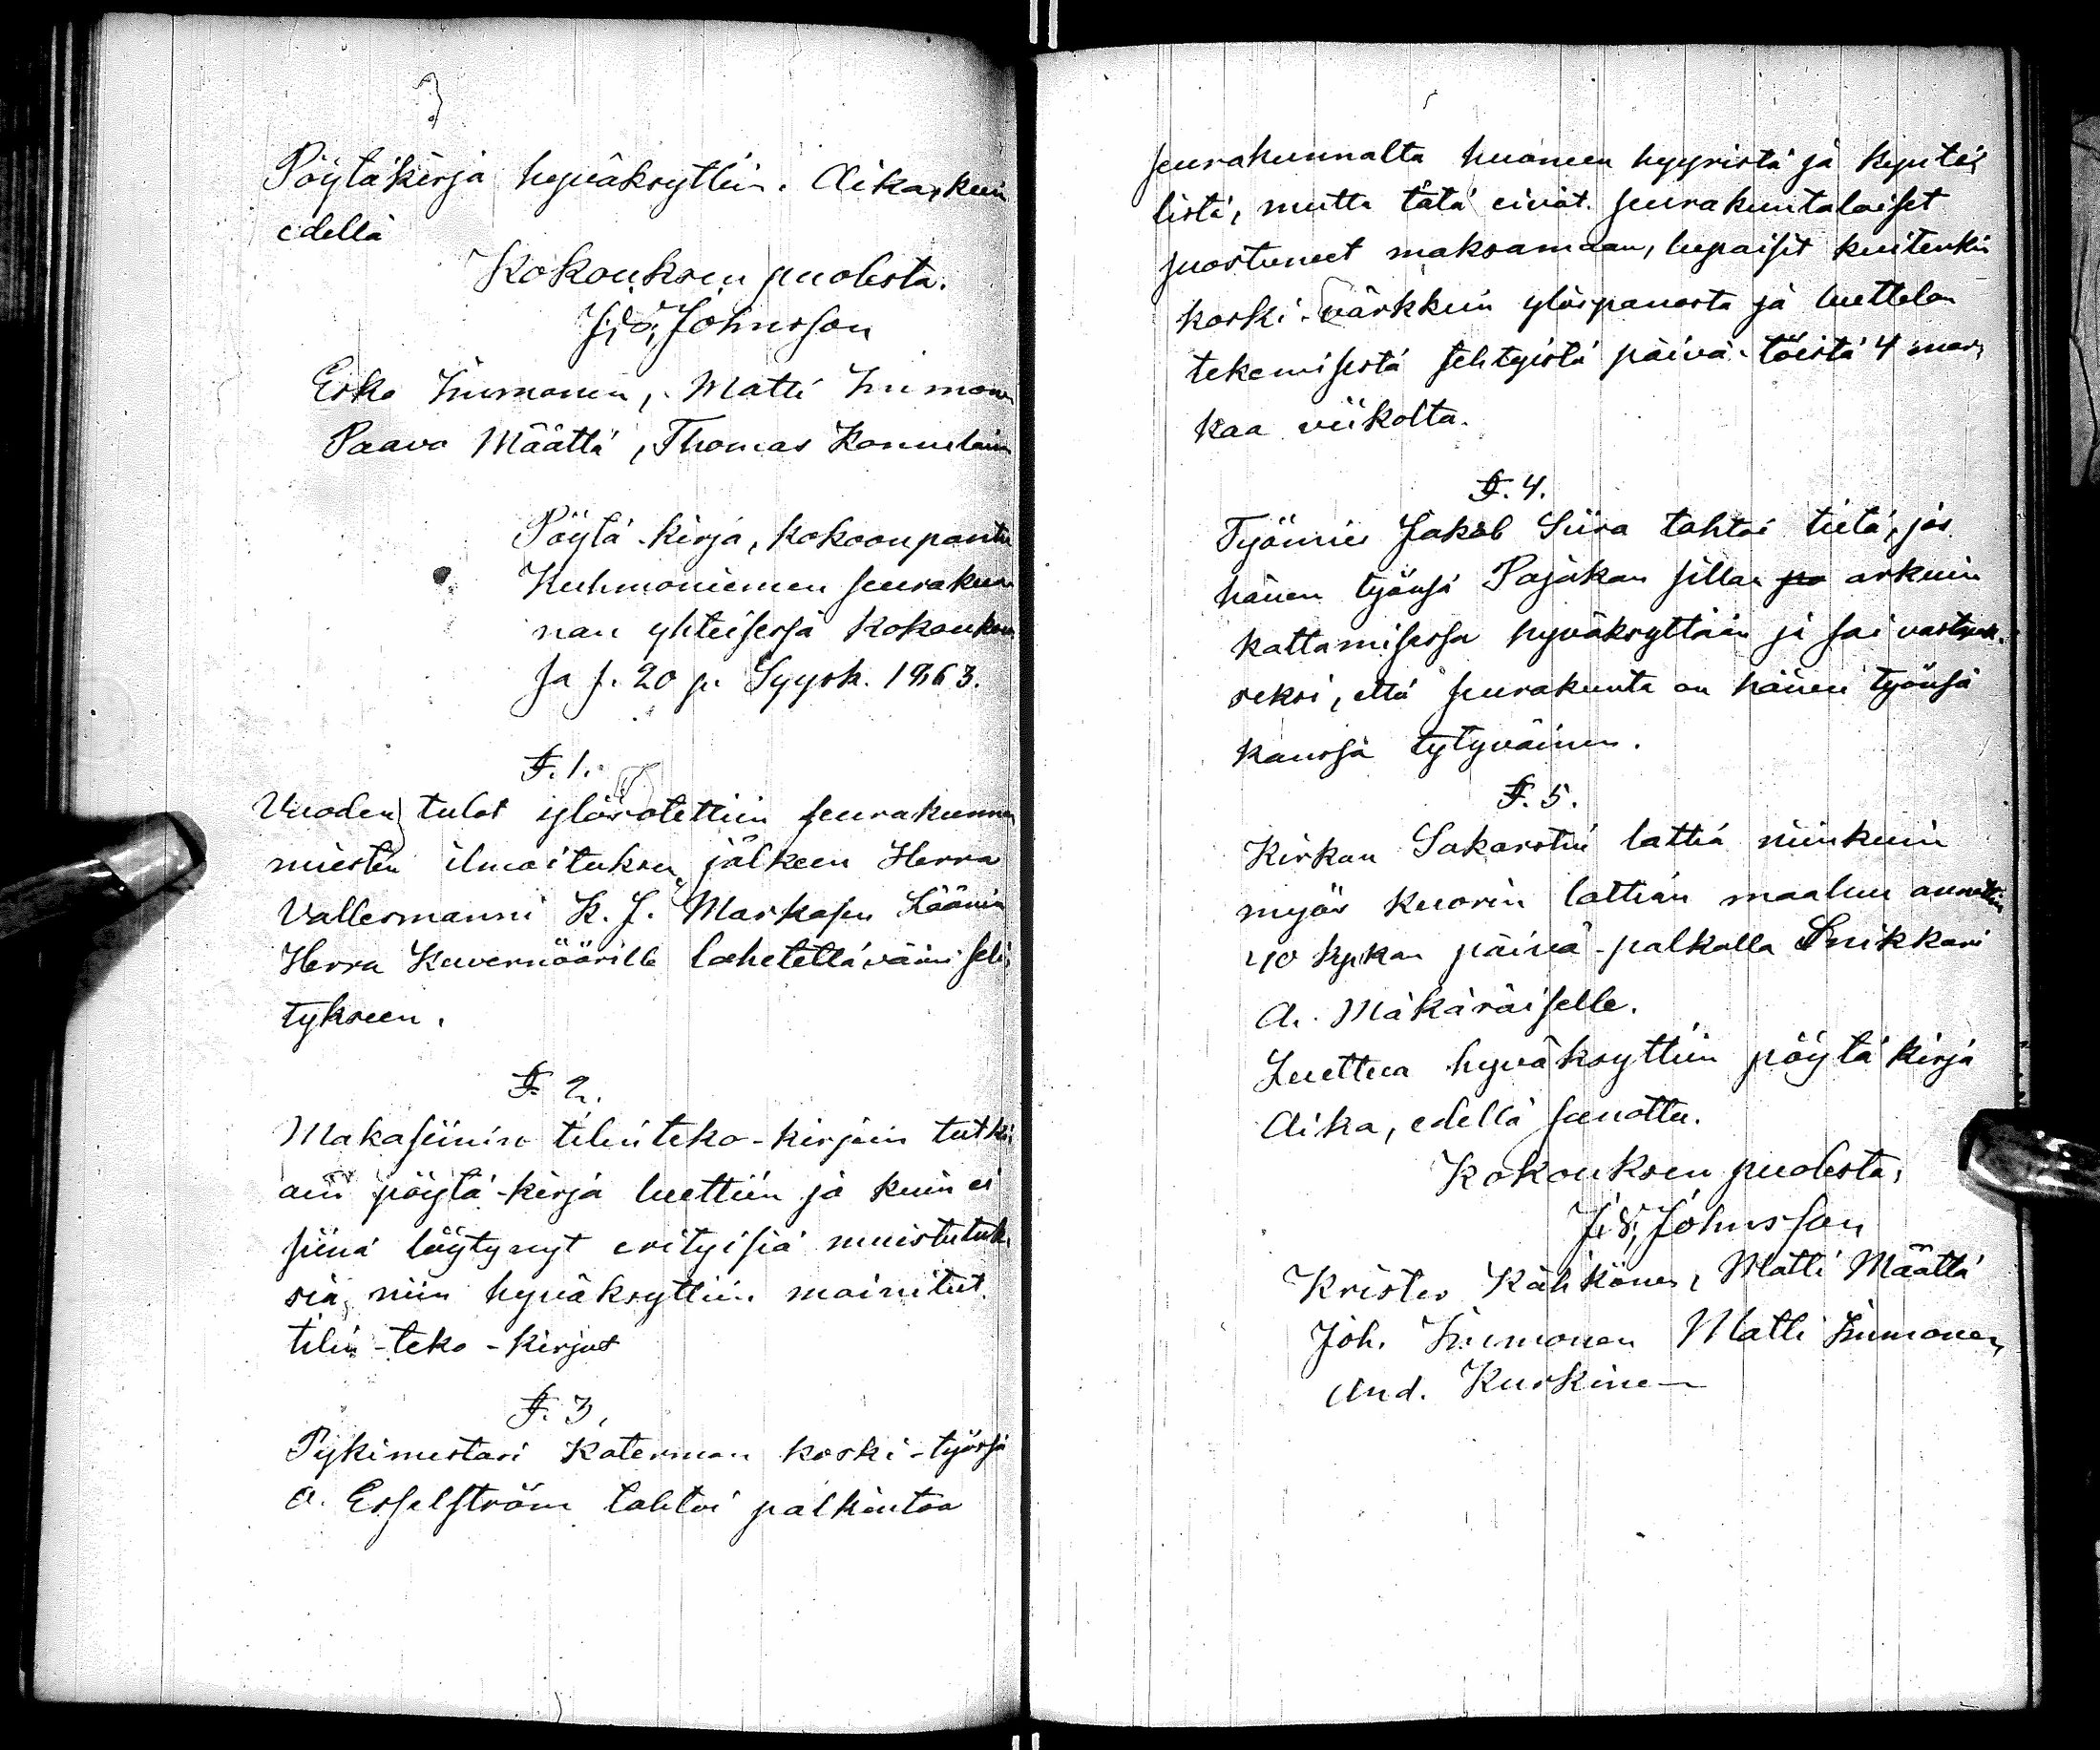 Pöytäkirja hyväksyttiin. Aika, kuin
edellä
Kokouksen puolesta.
Johnsson
Esko Immonen, Matti Immonen
Paavo Määttä, Thomas
Pöytä-kirja, kokoonpantu
Kuhmoniemen seurakun
nan yhteisessä kokoukses
sa s. 20 p. Syysk. 1863.
§. 1.
Vuoden tulot ylösotettiin seurakunnan
miesten ilmoituksen jälkeen Herra
Vallesmanni K. J. Markasen Läänin
Herra Kuvernöörille lähetettävään seli
tykseen.
§. 2.
Makasiinin tilinteko-kirjain tutki
ain pöytä-kirja luettiin ja kuin ei
siinä löytynyt erityisiä muistutuk
sia, niin hyväksyttiin mainitut
tilin-teko-kirjat
§. 3,
Pykimestari Katerman koski-työssä
A. Esselström tahtoi palkintoa
seurakunnalta huoneen hyyristä ja kyntei
listä, mutta tätä eivät seurakuntalaiset
suostuneet maksamaan, lupaisit kuitenkin
koski-värkkein ylöspanosta ja luettelon
tekemisestä tehtyistä päivä-töistä 4 mar
kaa viikolta.
§. 4.
Työmies Jakob Siira tahtoi tietä, jos
hänen työnsä Pajakan sillan arkuin
kattamisessa hyväksyttään ja sai vastauk
seksi, että seurakunta on hänen työnsä
kanssa tytyväinen.
§. 5.
Kirkon Sakarstin lattia niinkuin
myös kuorin lattian maaluu annettiin
40 kpkan päivä-palkalla Snikkari
A. Mäkäräiselle.
Luettua hyväksyttiin pöytäkirja
Aika, edellä sanottu.
Kokouksen puolesta,
Johnsson
Krister Kähkönen, Matti Määttä
Joh. Immonen Matti Immonen,
And. Kurkinen